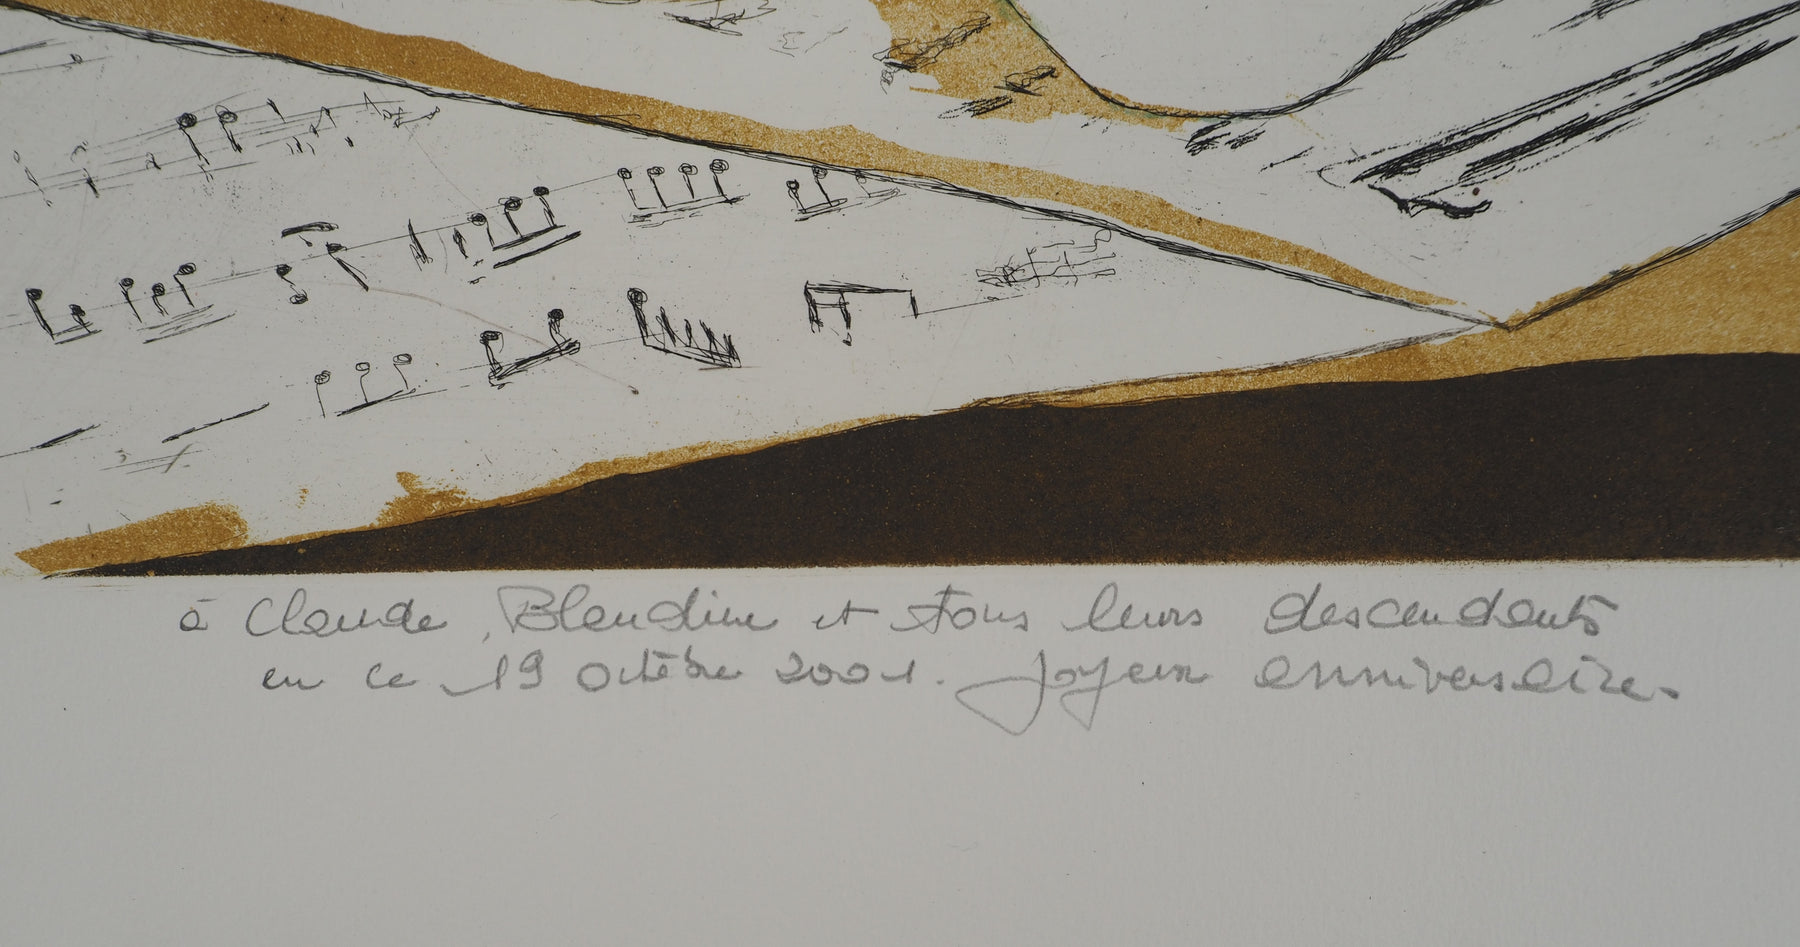 à Claude, Blandine et tous leurs descendants
en ce 19 octobre 2001. Joyeux anniversaire.